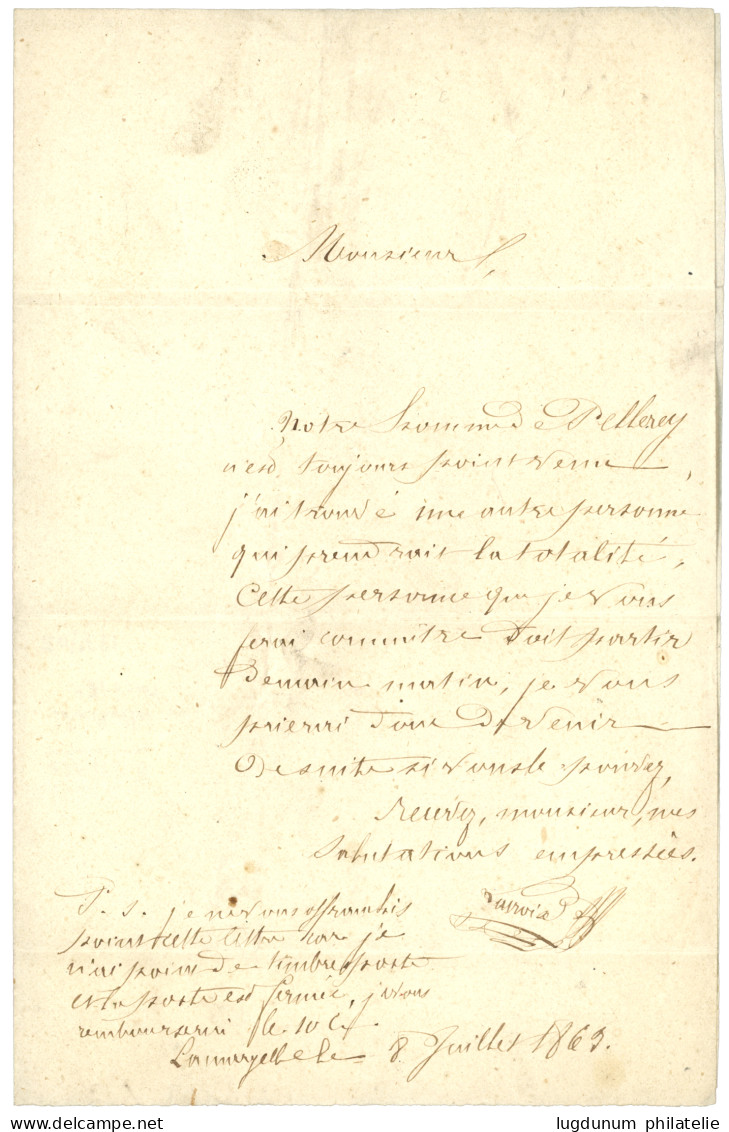 Monsieur,
Notre homme de Pellerey
n'est toujours point venu,
j'ai trouvé une autre personne
qui prendrait la totalité,
Cette personne que je vous
ferai connaître doit partir
demain matin, je vous
prierai donc de venir
de suite si vous le pouvez,
Recevez, monsieur, mes
salutations empressées.
P. S. je ne vous affranchis
point cette lettre car je
n'ai point de timbre poste
et la poste est fermée, je vous
rembourserai le 10 c.
Lamargelle le 8 Juillet 1863.
lugdunum philatelie